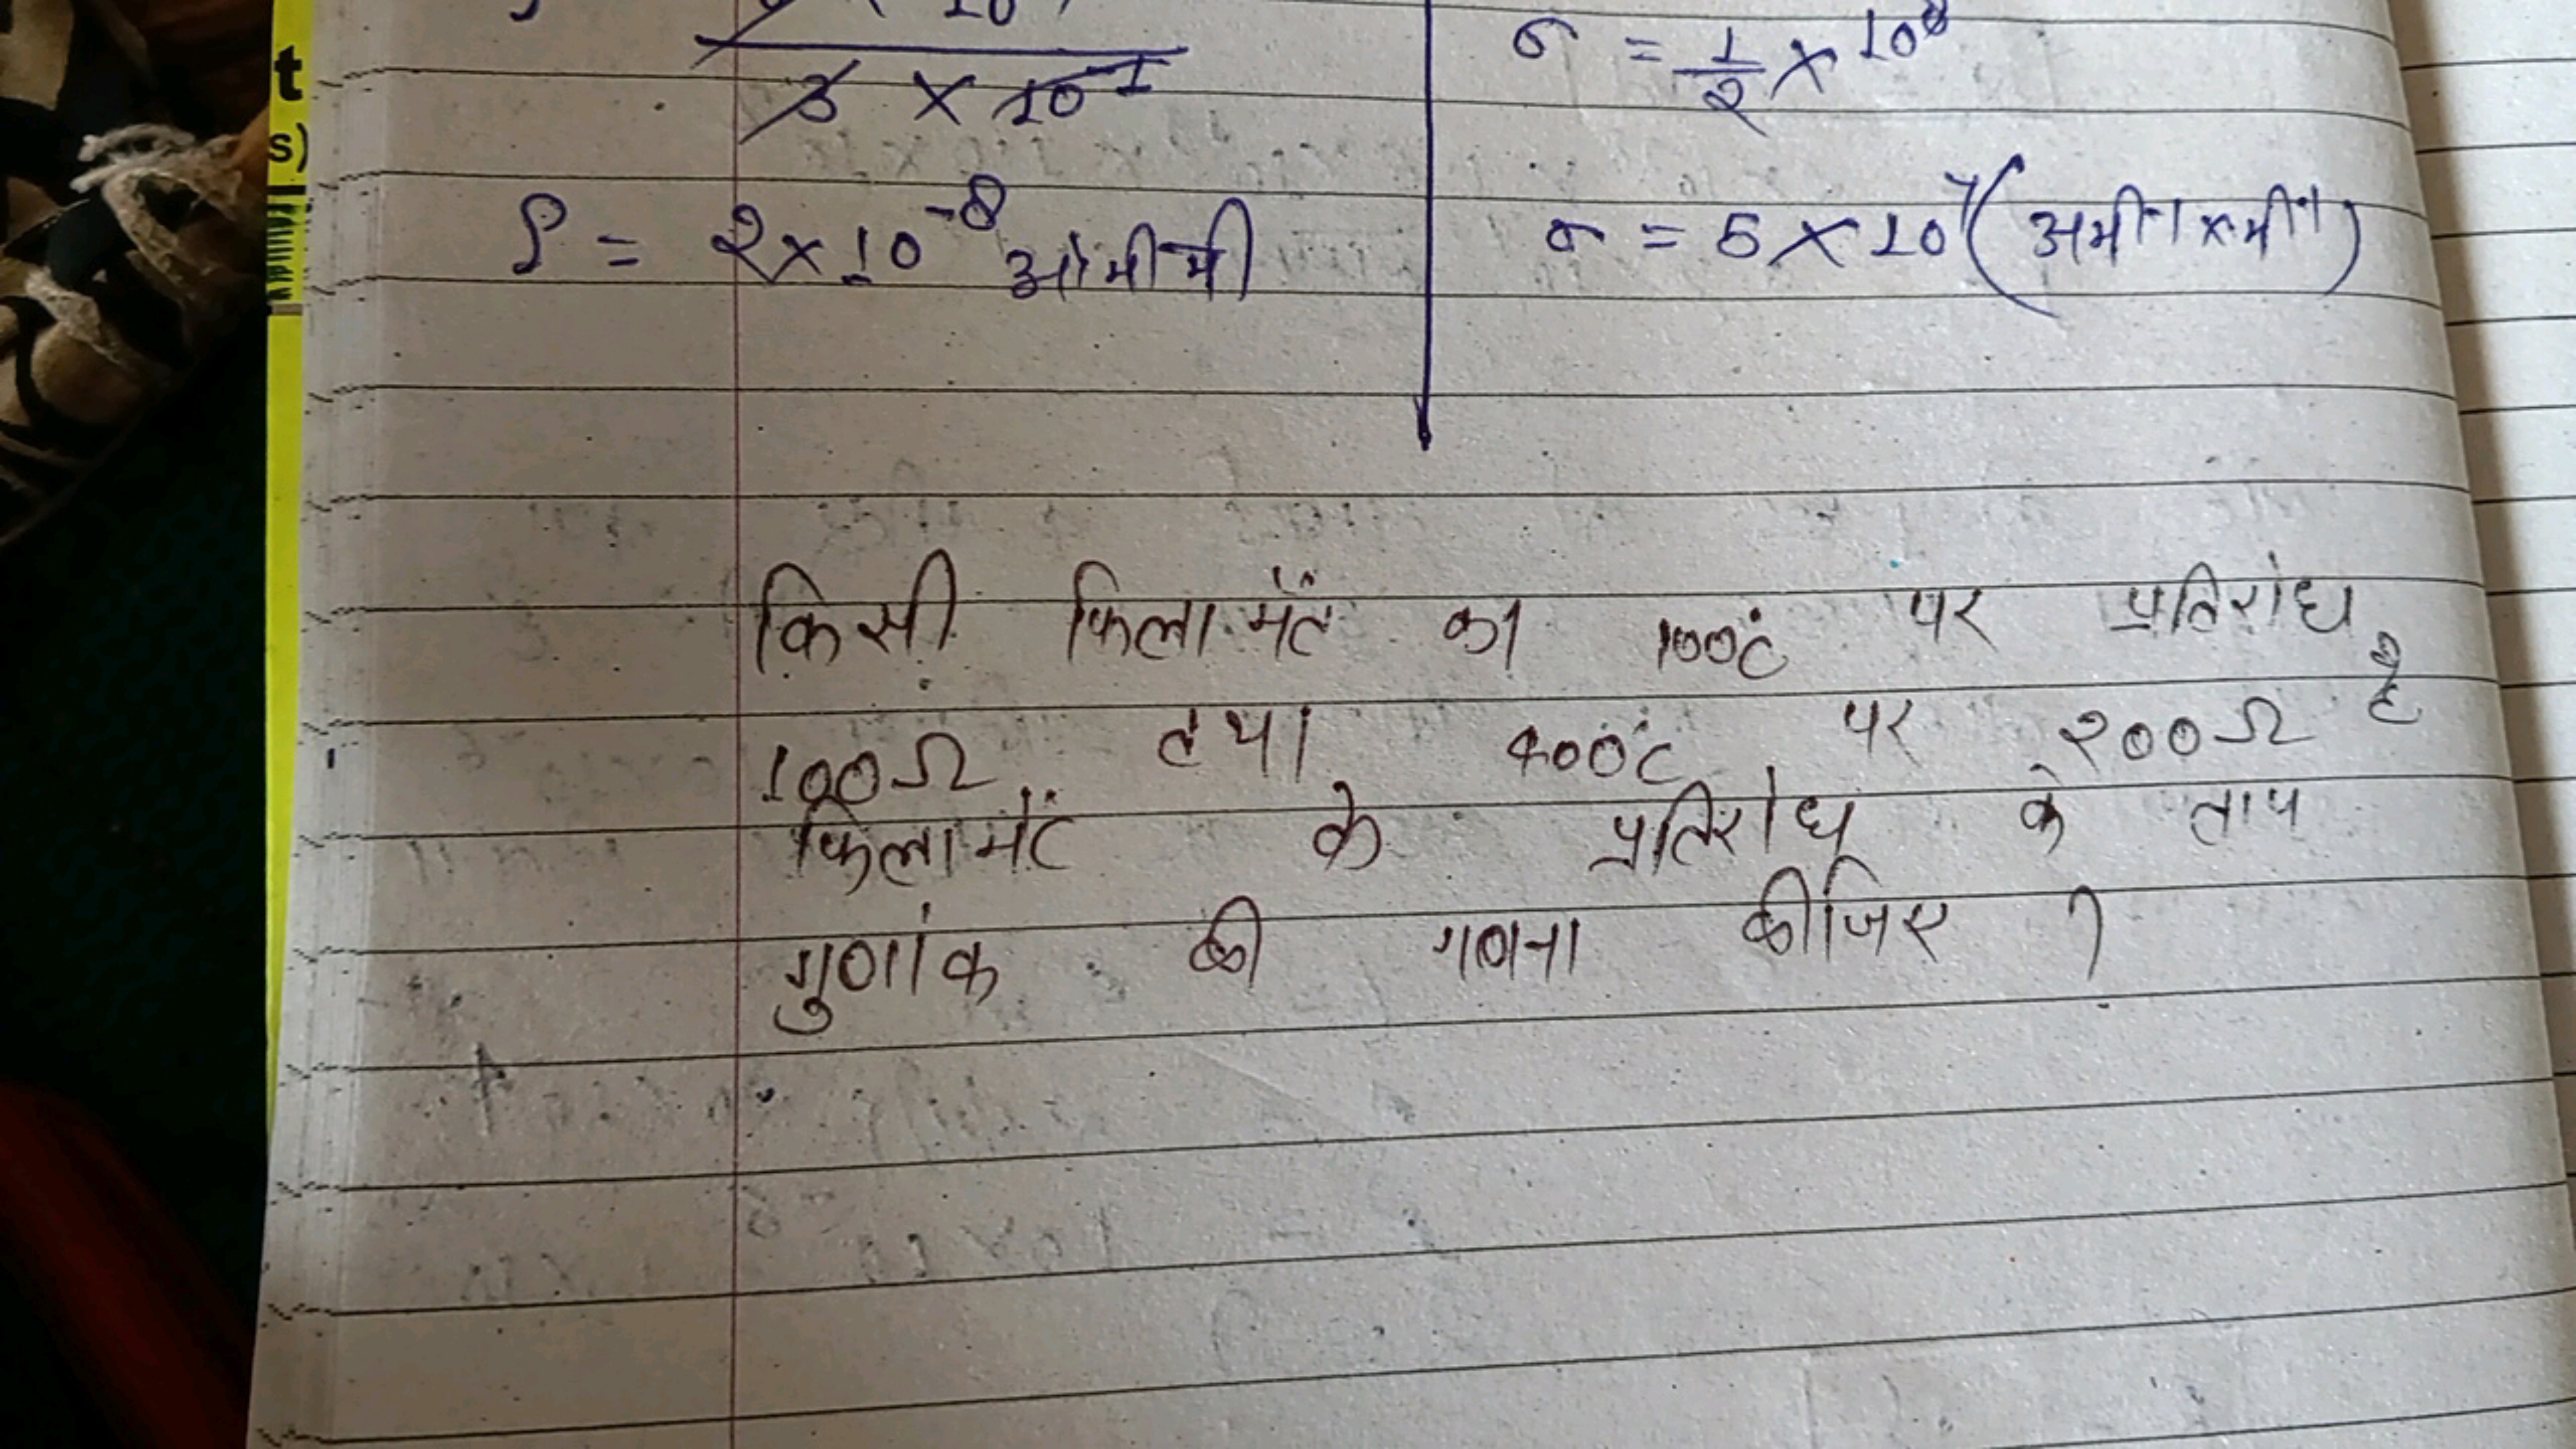 t
s)
3 × 10⁻¹
ρ = 2×10⁻⁸ ओमी मी
σ = 1/2 × 10⁸
σ = 5 × 10⁷ (
किसी फिलामेंट का 100°c पर प्रतिरोध
100Ω तथा 400°c पर 200Ω है
फिलामेंट के प्रतिरोध के ताप
गुणांक की गणना कीजिए ?